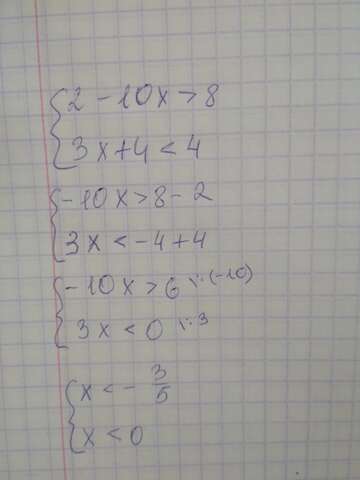 {2 - 10x > 8
3x + 4 < 4
{-10x > 8 - 2
3x < -4 + 4
{-10x > 6 |:(-10)
3x < 0 |:3
{x < - 3/5
x < 0